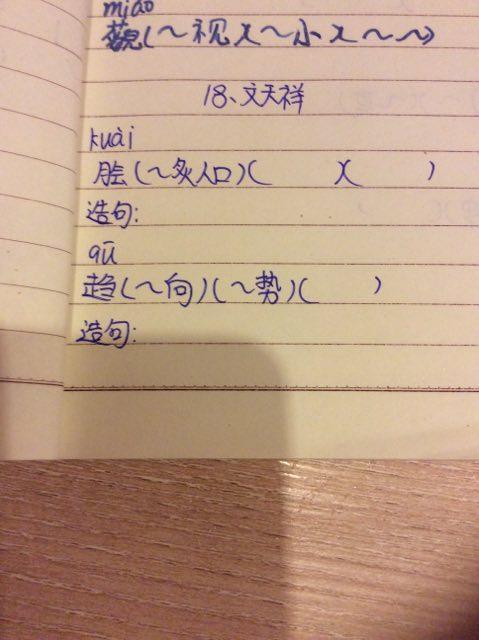 miǎo
藐(～视)(～小)(～～)
18、文天祥
kuài
脍(～炙人口)(      )(      )
造句:
qū
趋(～向)(～势)(      )
造句: